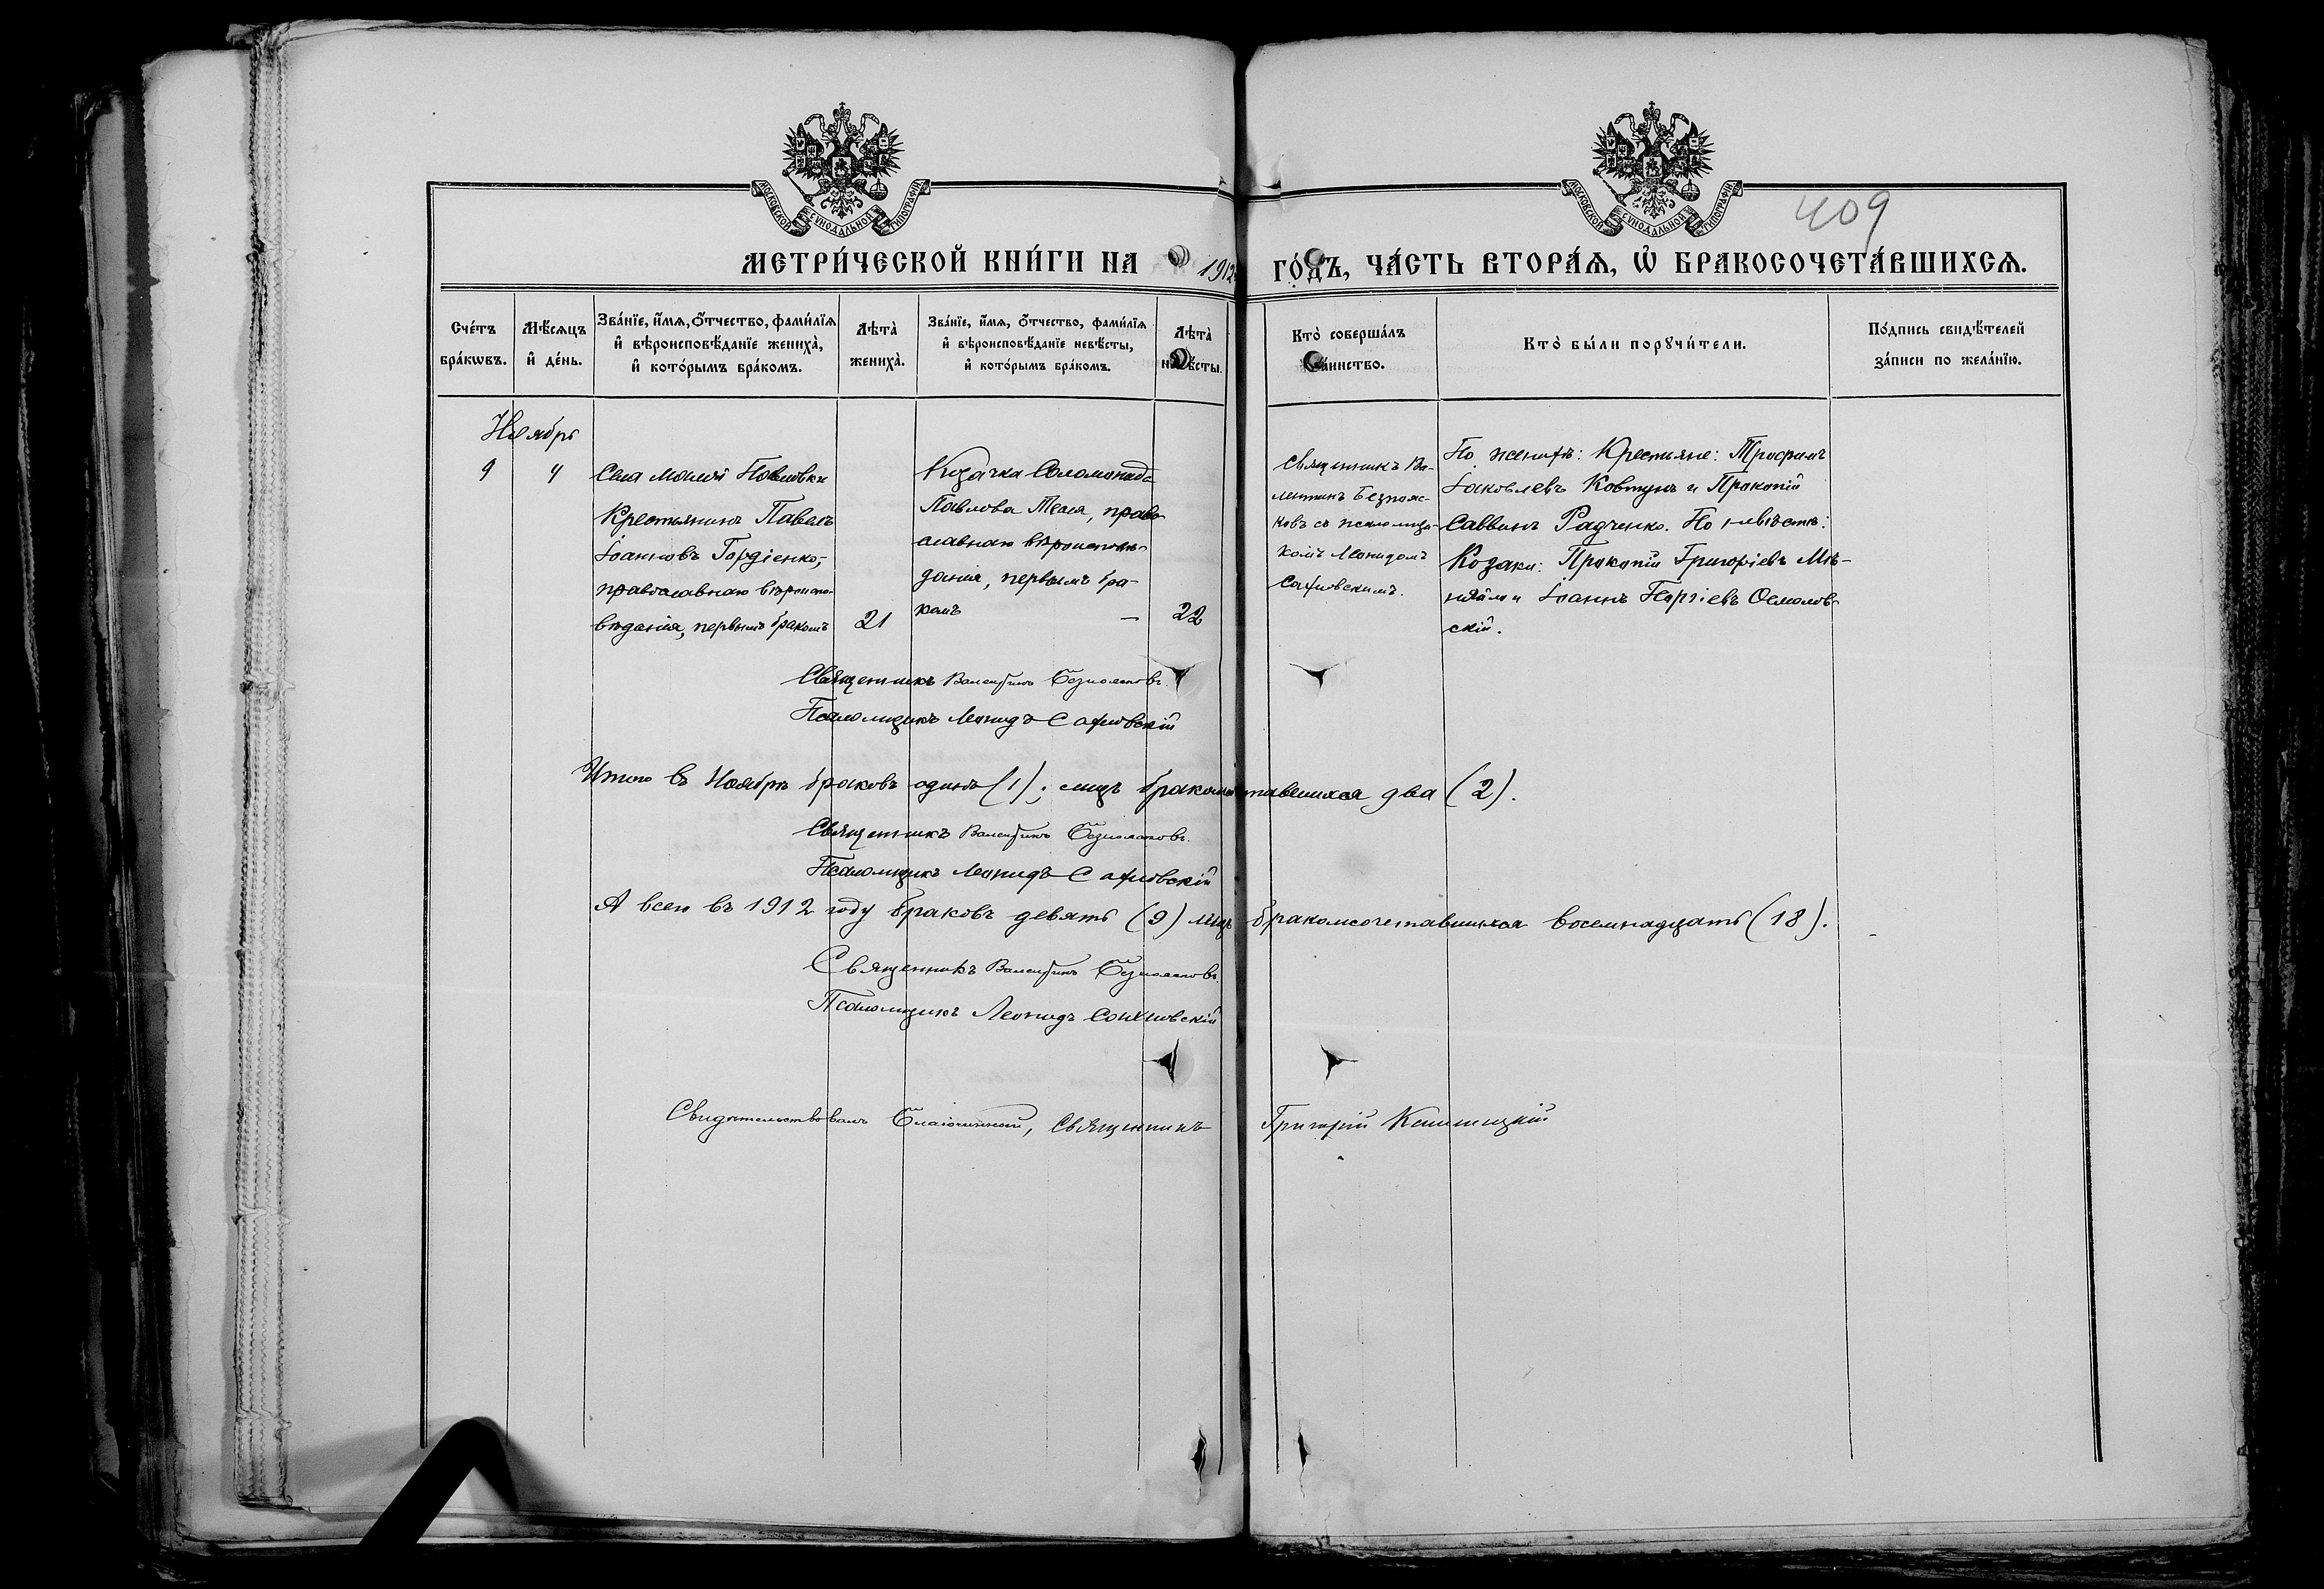 МОСКОВСКОЙ СѴНОДАЛЬНОЙ ТИПОГРАФІИ
МОСКОВСКОЙ СѴНОДАЛЬНОЙ ТИПОГРАФІИ
409
МЕТРИ́ЧЕСКОЙ КНИ́ГИ НА 1912 ГО́ДЪ, ЧА́СТЬ ВТОРА́Ѧ, Ѡ҆ БРАКОСОЧЕТА́ВШИХСѦ.
Сче́тъ бра́кѡвъ.
Мѣ́сѧцъ и҆ де́нь.
Зва́нїе, и҆́мѧ, ѻ҆́тчество, фами́лїѧ и҆ вѣроисповѣ́данїе жениха̀, и҆ кото́рымъ бра́комъ.
Лѣта̀ жениха̀.
Зва́нїе, и҆́мѧ, ѻ҆́тчество, фами́лїѧ и҆ вѣроисповѣ́данїе невѣ́сты, и҆ кото́рымъ бра́комъ.
Лѣта̀ невѣ́сты.
Кто̀ соверша́лъ та́инство.
Кто̀ бы́ли порꙋчи́тели.
По́дпись свидѣ́телей за́писи по жела́нїю.
Ноябрь
9
4
Села Малой Павловки
Крестьянинъ Павелъ
Іоанновъ Гордіенко,
православнаго вѣроиспо-
вѣданія, первымъ бракомъ
21
Козачка Соломонида
Павлова, право-
славнаго вѣроисповѣ-
данія, первымъ бра-
комъ
22
Священникъ Ва-
лентинъ
съ псаломщи-
комъ Леонидомъ
По женихѣ: Крестьяне: Трофимъ
Іаковлевъ Ковтунъ и Прокопій
Саввинъ Радченко. По невѣстѣ:
Козаки: Прокопій Григоріевъ
Іоаннъ Георгіевъ Осмолов-
скій.
Священникъ Валентинъ
Псаломщикъ Леонидъ
Итого въ Ноябрѣ браковъ одинъ (1); лицъ бракомсочетавшихся два (2).
Священникъ Валентинъ
Псаломщикъ Леонидъ
А всего въ 1912 году браковъ девять (9) лицъ бракомсочетавшихся восемнадцать (18).
Священникъ Валентинъ
Псаломщикъ Леонидъ
Свидѣтельствовалъ Благочинный, Священникъ Григорій